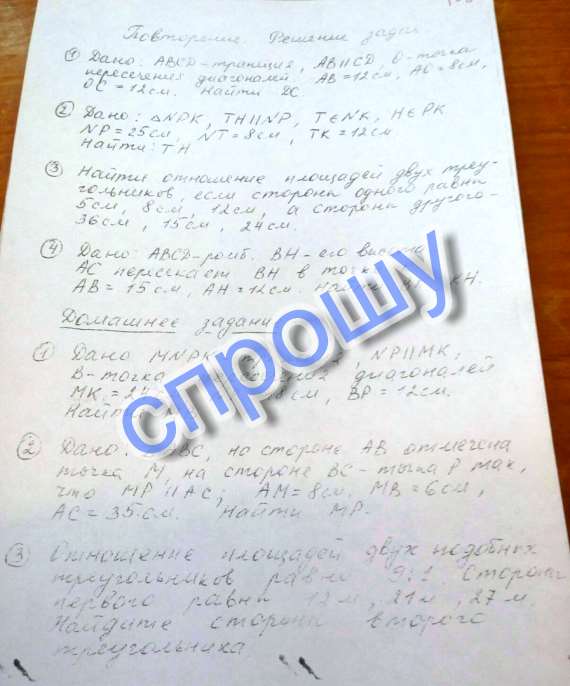 Повторение. Решение задач
① Дано: ABCD-трапеция, AB||CD, O-точка
пересечения диагоналей. AB=12см, AO=8см,
OC=12см. Найти DC.
② Дано: △NPK, TH||NP, T∈NK, H∈PK
NP=25см, NT=8см, TK=12см
Найти: TH
③ Найти отношение площадей двух треу-
гольников, если стороны одного равны
5см, 8см, 12см, а стороны другого-
36см, 15см, 24см.
④ Дано: ABCD-ромб. BH-его
AC пересекает BH в
AB=15см, AH=12см. KH.
Домашнее
① Дано MNPK NP||MK,
B-точка диагоналей
MK BP=12см.
Найти
② Дано: на стороне AB отмечена
точка M, на стороне BC-точка P так,
что MP||AC; AM=8см. MB=6см,
AC=35см. Найти MP.
③ Отношение площадей двух подобных
треугольников равно 9:1 Стороны
первого равны 12м, 21м, 27м.
Найдите стороны второго
треугольника.
спрошу